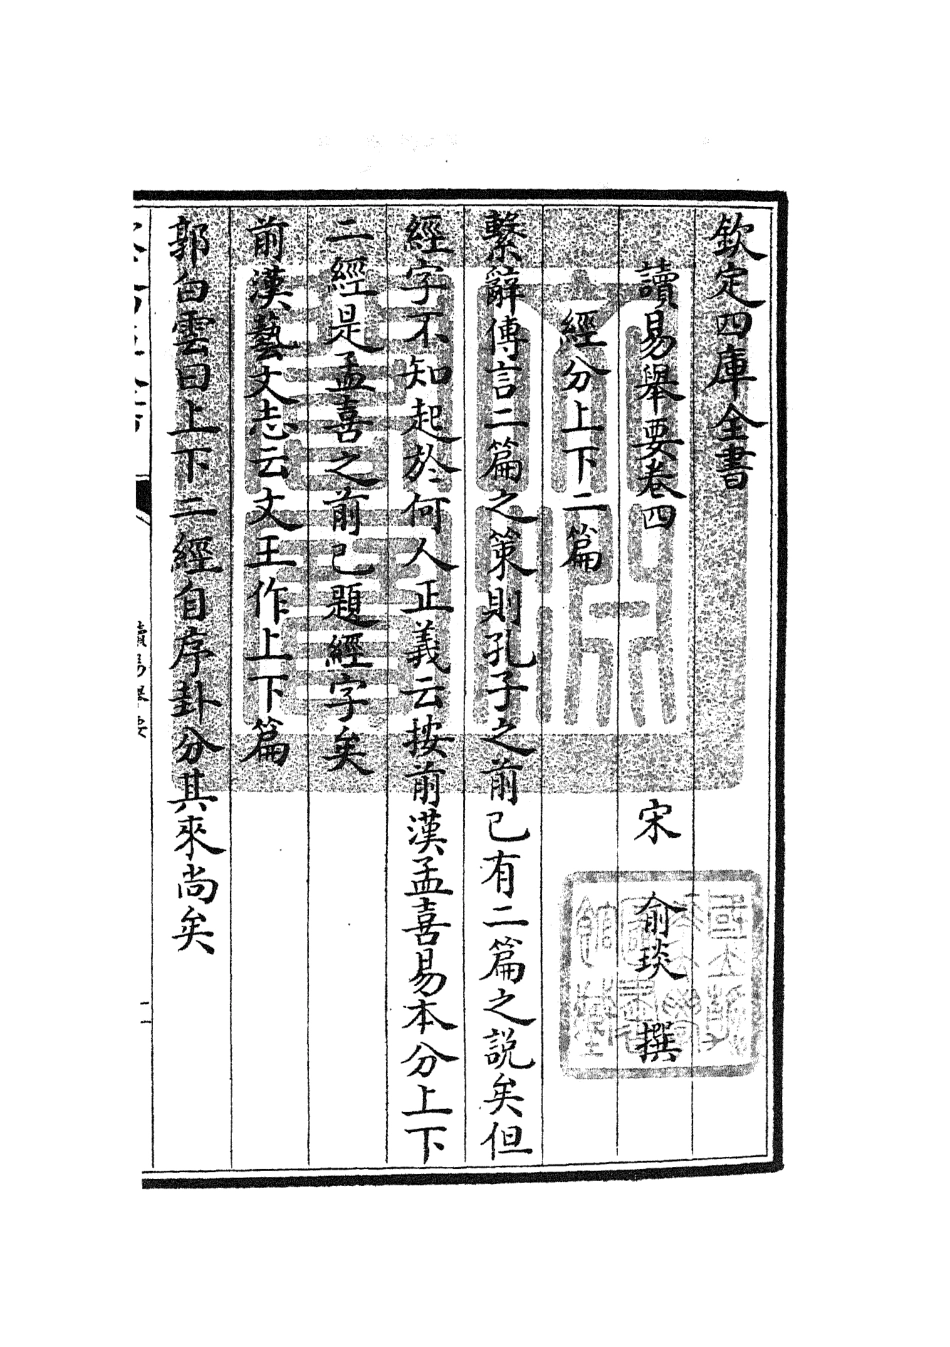 欽定四庫全書
讀易舉要卷四
宋 俞琰 撰
經分上下二篇
繫辭傳言二篇之策則孔子之前已有二篇之說矣但
經字不知起於何人正義云按前漢孟喜易本分上下
二經是孟喜之前已題經字矣
前漢藝文志云文王作上下篇
郭白雲曰上下二經自序卦分其來尚矣
讀易舉要